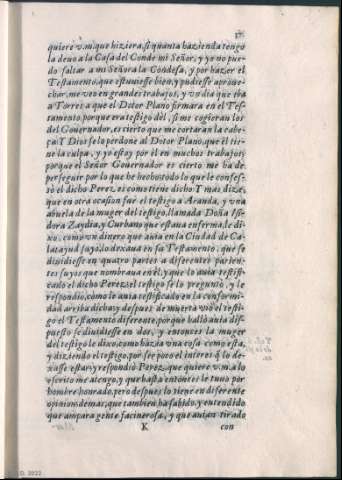 37
quiere v.m. que hiziera, si quanta hazienda tengo
la deuo a la Casa del Conde mi Señor, y yo no pue-
do faltar a mi Señora la Condesa, y por hazer el
Testamento, que estuuiesse bien, y pudiesse aproue-
char, me veo en grandes trabajos, y vn dia que iba
a Torres a que el Dotor Plano firmara en el Tes-
tamento, porque era testigo dèl, si me cogieran los
del Gouernador, es cierto que me cortaran la cabe-
ça: Y Dios se lo perdone al Dotor Plano, que èl tie-
ne la culpa, y yo estoy por èl en muchos trabajos,
porque el Señor Gouernador es cierto me ha de
perseguir por lo que he hecho: todo lo que le confes-
sò el dicho Perez, es como tiene dicho: Y mas dize,
que en otra ocasion fue el testigo a Aranda, y vna
abuela de la muger del testigo, llamada Doña Isi-
dora Zaydia, y Curbano, que estaua enferma, le di-
xo, como vn dinero que auia en la Ciudad de Ca-
latayud suyo, lo dexaua en su Testamento, que se
diuidiesse en quatro partes a diferentes parien-
tes suyos que nombraua en èl, y que lo auia testifi-
cado el dicho Perez, el testigo se lo preguntò, y le
respondiò, como le auia testificado en la conformi-
dad arriba dicha, y despues de muerta viò el testi-
go el Testamento diferente, porque hallò auia dis-
puesto se diuidiesse en dos, y entonces la muger
del testigo le dixo, como hazia vna cosa como esta,
y diziendo el testigo, por ser poco el interes q̃ lo de-
xasse estar, y respondiò Perez, que quiere v.m. a lo
escrito me atengo, y que hasta entonces le tuuo por
hombre honrado, pero despues lo tiene en diferente
opinion: demas, que tambien ha sabido, y entendido
que ampara gente facinerosa, y que auian tirado
K con